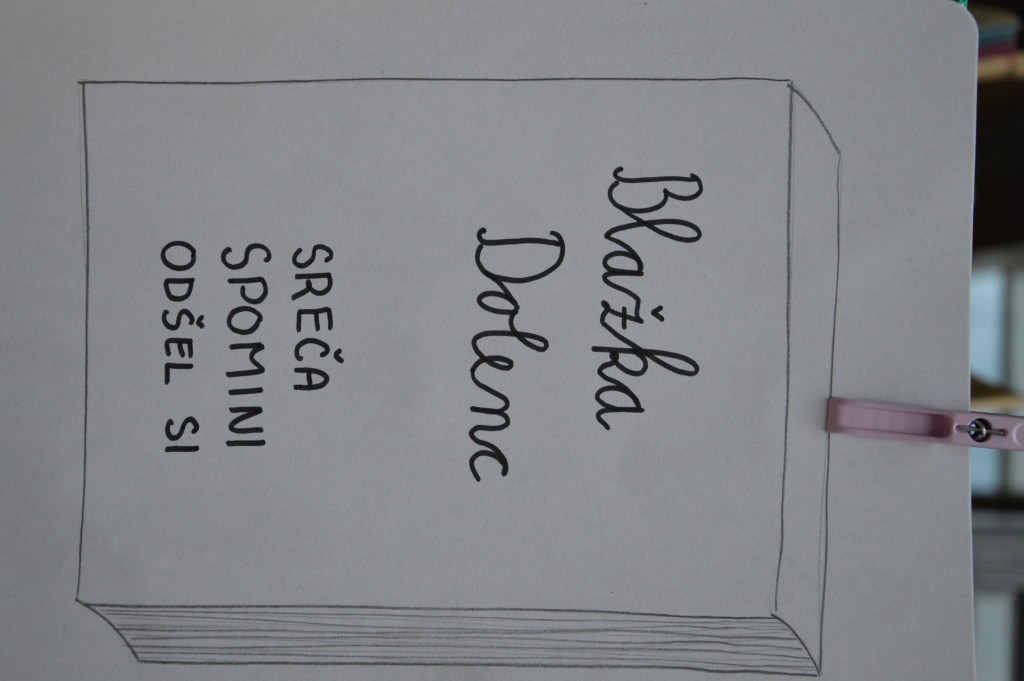 Blažka
Dolenc
SREČA
SPOMINI
ODŠEL SI